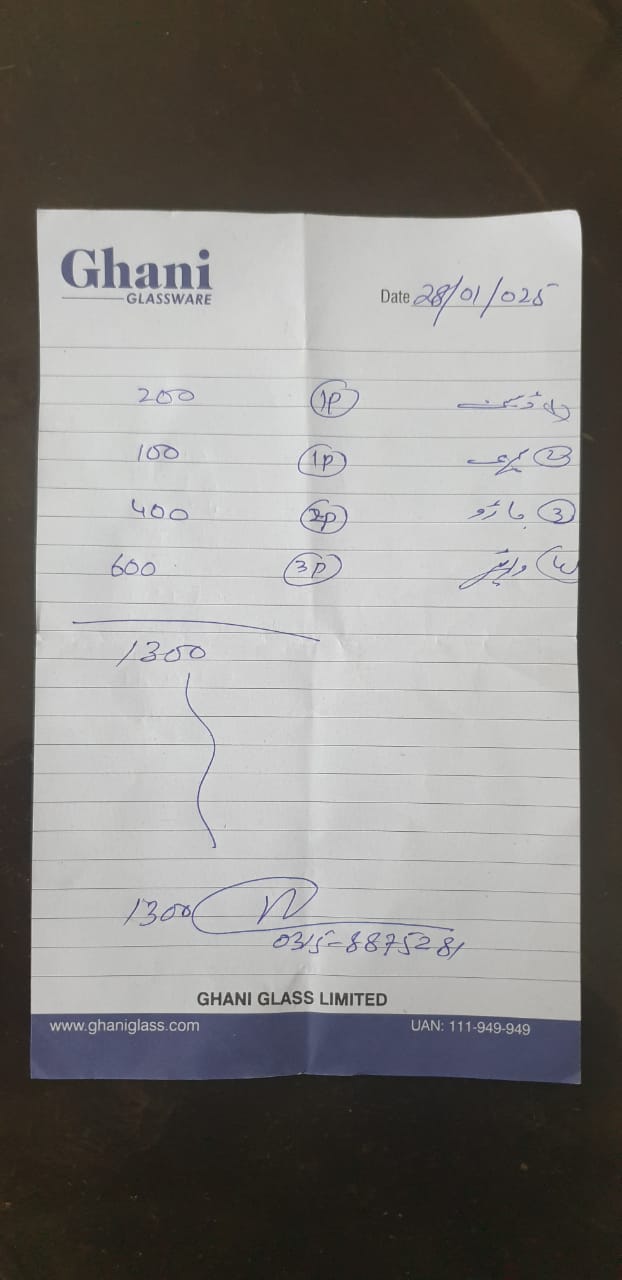 Ghani
GLASSWARE
Date 28/01/025
200 1P
100 1P ②
جاڑو ③ 2P 400
وائپر ④ 3P 600
1300
1300
0315-8875281
GHANI GLASS LIMITED
www.ghaniglass.com UAN: 111-949-949